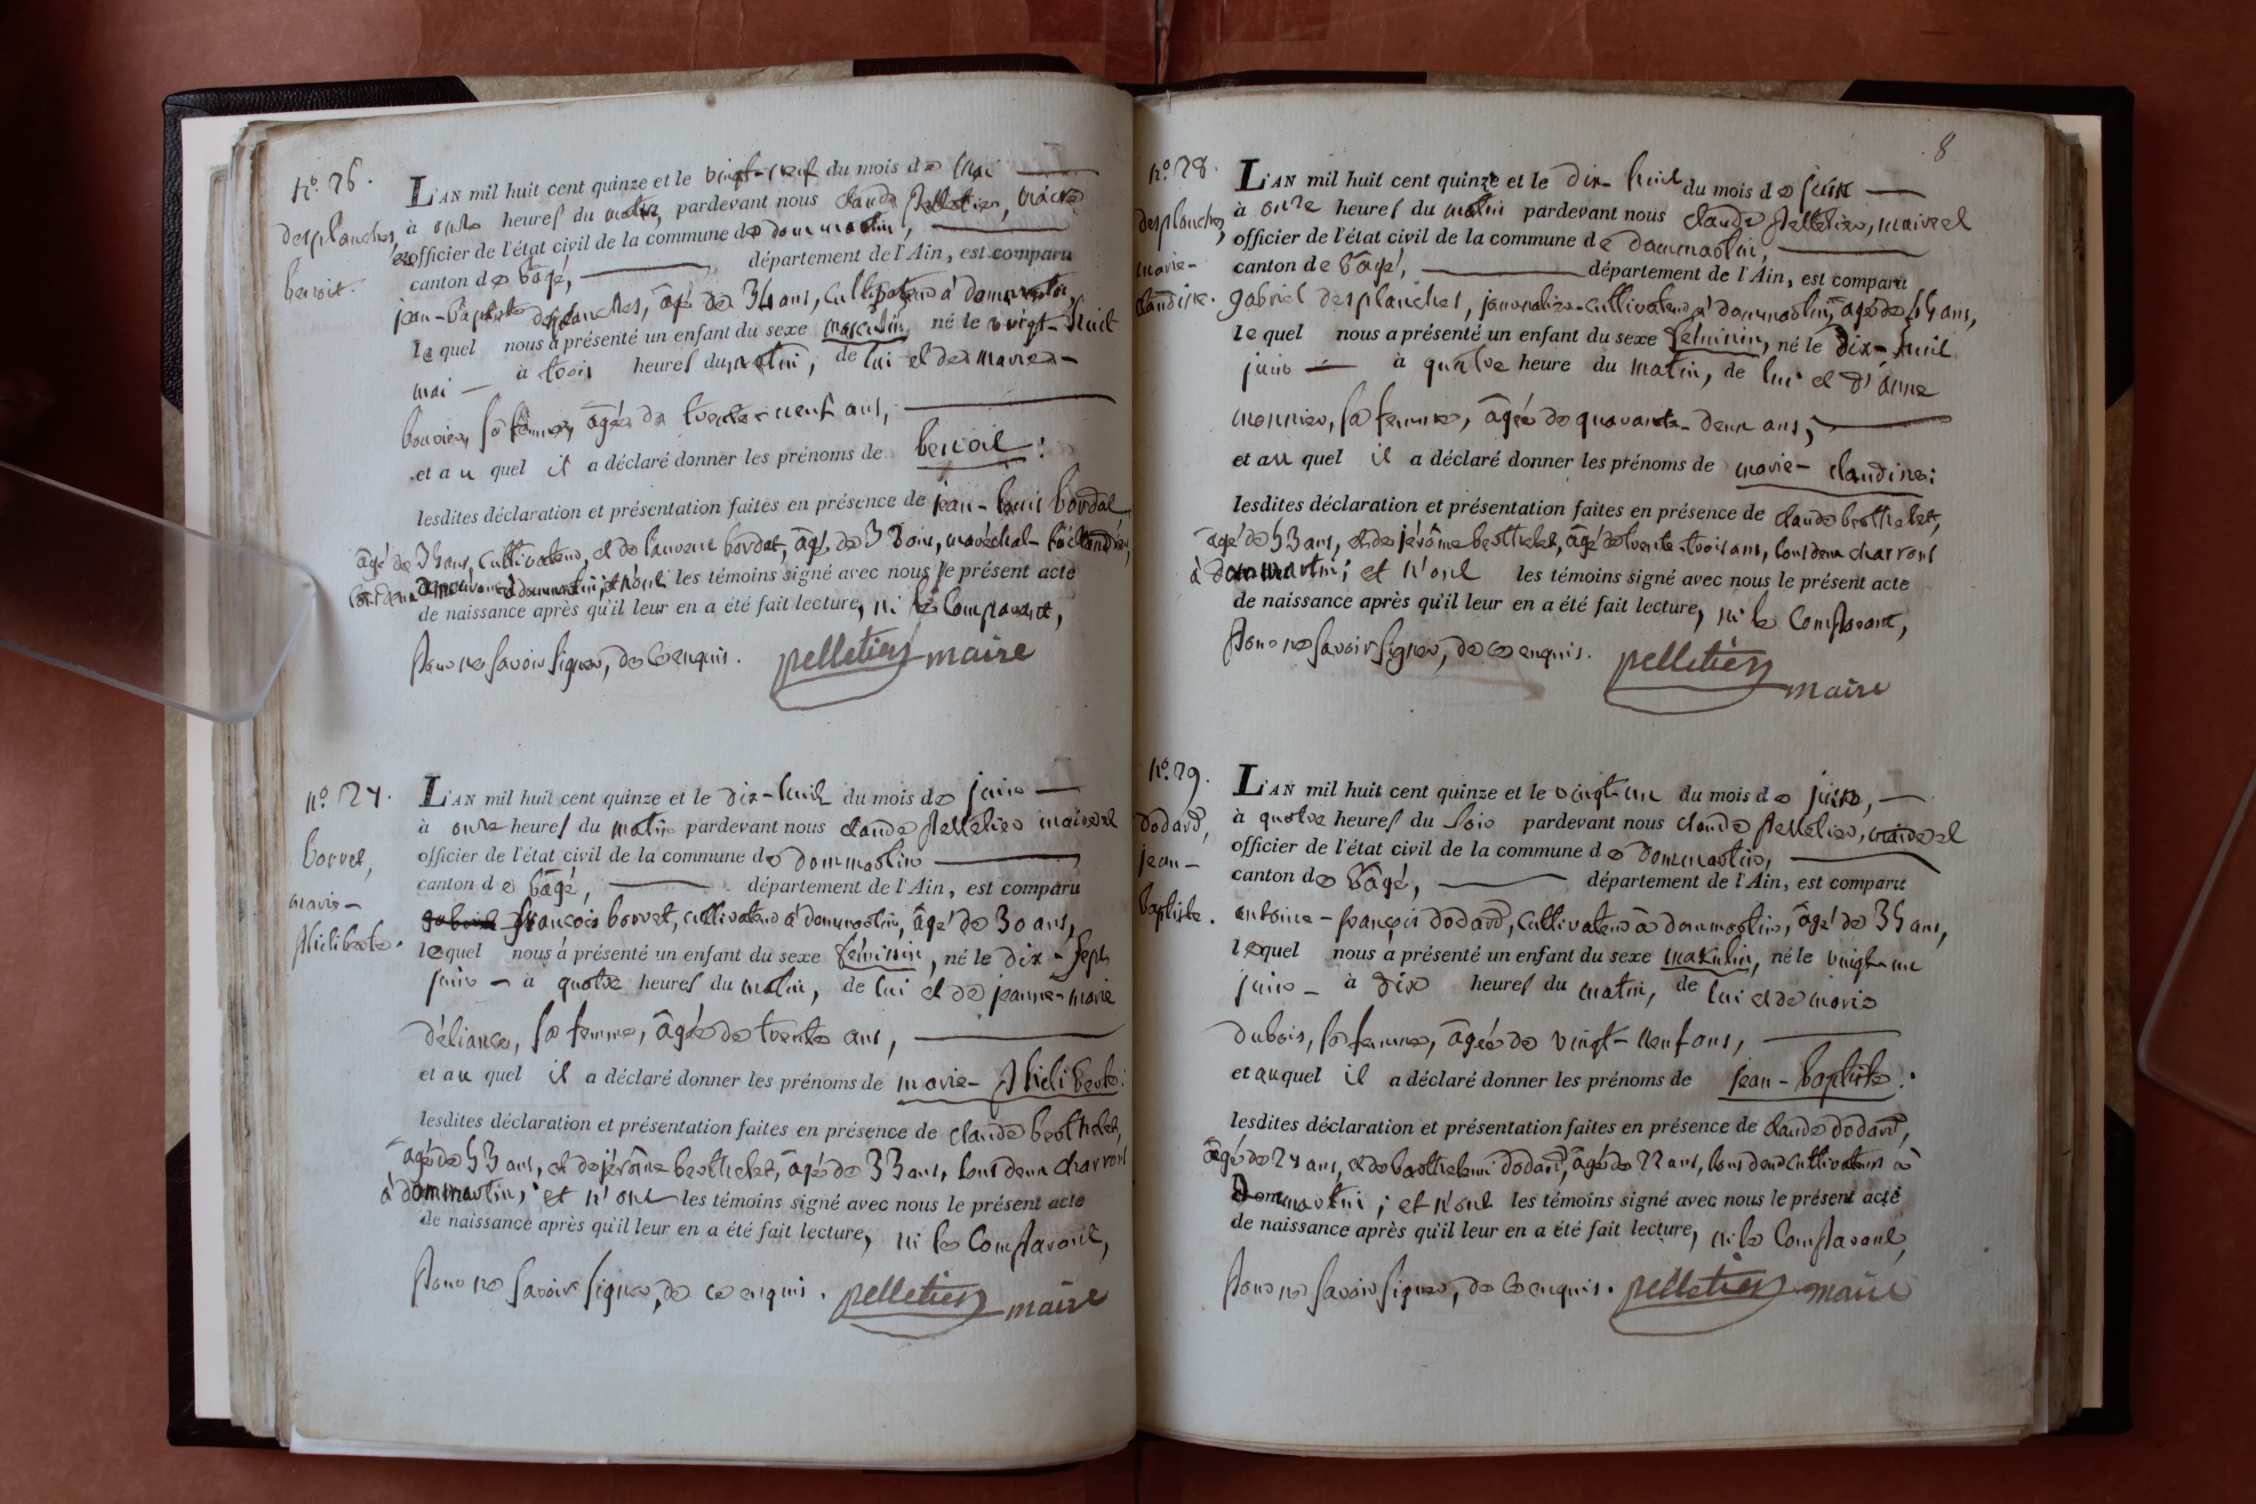 n.º 26.
desplanches,
benoit.
L'AN mil huit cent quinze et le vingt-neuf du mois de mai
à onze heures du matin, pardevant nous claude pelletier, maire
et officier de l'état civil de la commune de dommartin,
canton de bâgé, département de l'Ain, est comparu
jean-baptiste desplanches, âgé de 34 ans, cultivateur à dommartin,
lequel nous a présenté un enfant du sexe masculin, né le vingt-huit
mai à trois heures du matin, de lui et de marie
bouvier, sa femme, âgée de trente-neuf ans,
et au quel il a déclaré donner les prénoms de benoit:
lesdites déclaration et présentation faites en présence de jean-louis bordat,
âgé de 35 ans, cultivateur, et de laurent bordat, âgé de 38 ans, maréchal-
tous deux à dommartin; et n'ont les témoins signé avec nous le présent acte
de naissance après qu'il leur en a été fait lecture, ni le comparant,
pour ne savoir signer, de ce enquis. pelletier maire
n.º 27.
borvet,
marie-
philiberte.
L'AN mil huit cent quinze et le dix-huit du mois de juin
à onze heures du matin pardevant nous claude pelletier maire et
officier de l'état civil de la commune de dommartin
canton de bâgé, département de l'Ain, est comparu
françois borvet, cultivateur à dommartin, âgé de 30 ans,
lequel nous a présenté un enfant du sexe féminin, né le dix-sept
juin à quatre heures du matin, de lui et de jeanne-marie
déliance, sa femme, âgée de trente ans,
et au quel il a déclaré donner les prénoms de marie-philiberte:
lesdites déclaration et présentation faites en présence de claude berthelet,
âgé de 53 ans, et de jérôme berthelet, âgé de 33 ans, tous deux charrons
à dommartin; et n'ont les témoins signé avec nous le présent acte
de naissance après qu'il leur en a été fait lecture, ni le comparant,
pour ne savoir signer, de ce enquis. pelletier maire
8
n.º 28.
desplanches,
marie-
claudine.
L'AN mil huit cent quinze et le dix-huit du mois de juin
à onze heures du matin pardevant nous claude pelletier, maire et
officier de l'état civil de la commune de dommartin,
canton de bâgé, département de l'Ain, est comparu
gabriel desplanches, journalier-cultivateur à dommartin, âgé de ans,
lequel nous a présenté un enfant du sexe féminin, né le dix-huit
juin à quatre heure du matin, de lui et d'anne
monnier, sa femme, âgée de quarante-deux ans,
et au quel il a déclaré donner les prénoms de marie-claudine:
lesdites déclaration et présentation faites en présence de claude berthelet,
âgé de 53 ans, et de jérôme berthelet, âgé de trente-trois ans, tous deux charrons
à dommartin; et n'ont les témoins signé avec nous le présent acte
de naissance après qu'il leur en a été fait lecture, ni le comparant,
pour ne savoir signer, de ce enquis. pelletier
maire
n.º 29.
dodard,
jean-
baptiste.
L'AN mil huit cent quinze et le vingt-un du mois de juin,
à quatre heures du soir pardevant nous claude pelletier, maire et
officier de l'état civil de la commune de dommartin,
canton de bâgé, département de l'Ain, est comparu
antoine-françois dodard, cultivateur à dommartin, âgé de 35 ans,
lequel nous a présenté un enfant du sexe masculin, né le vingt-un
juin à dix heures du matin, de lui et de marie
dubois, sa femme, âgée de vingt-neuf ans,
et auquel il a déclaré donner les prénoms de jean-baptiste:
lesdites déclaration et présentation faites en présence de claude dodard,
âgé de 27 ans, et de barthelemi dodard, âgé de 22 ans, tous deux cultivateurs à
dommartin; et n'ont les témoins signé avec nous le présent acte
de naissance après qu'il leur en a été fait lecture, ni le comparant,
pour ne savoir signer, de ce enquis. pelletier maire